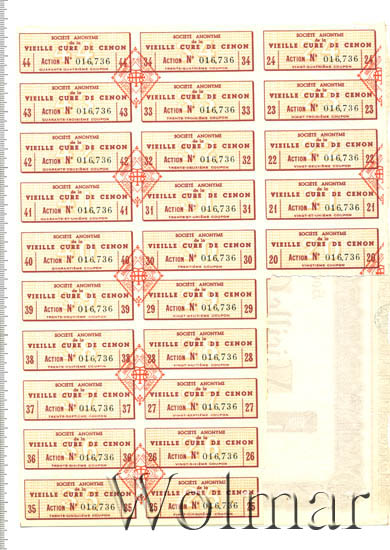 SOCIÉTÉ ANONYME
de la
VIEILLE CURE DE CENON
44 ACTION N° 016,736 44
QUARANTE-QUATRIÈME COUPON
SOCIÉTÉ ANONYME
de la
VIEILLE CURE DE CENON
34 ACTION N° 016,736 34
TRENTE-QUATRIÈME COUPON
SOCIÉTÉ ANONYME
de la
VIEILLE CURE DE CENON
24 ACTION N° 016,736 24
VINGT-QUATRIÈME COUPON
SOCIÉTÉ ANONYME
de la
VIEILLE CURE DE CENON
43 ACTION N° 016,736 43
QUARANTE-TROISIÈME COUPON
SOCIÉTÉ ANONYME
de la
VIEILLE CURE DE CENON
33 ACTION N° 016,736 33
TRENTE-TROISIÈME COUPON
SOCIÉTÉ ANONYME
de la
VIEILLE CURE DE CENON
23 ACTION N° 016,736 23
VINGT-TROISIÈME COUPON
SOCIÉTÉ ANONYME
de la
VIEILLE CURE DE CENON
42 ACTION N° 016,736 42
QUARANTE-DEUXIÈME COUPON
SOCIÉTÉ ANONYME
de la
VIEILLE CURE DE CENON
32 ACTION N° 016,736 32
TRENTE-DEUXIÈME COUPON
SOCIÉTÉ ANONYME
de la
VIEILLE CURE DE CENON
22 ACTION N° 016,736 22
VINGT-DEUXIÈME COUPON
SOCIÉTÉ ANONYME
de la
VIEILLE CURE DE CENON
41 ACTION N° 016,736 41
QUARANTE-ET-UNIÈME COUPON
SOCIÉTÉ ANONYME
de la
VIEILLE CURE DE CENON
31 ACTION N° 016,736 31
TRENTE-ET-UNIÈME COUPON
SOCIÉTÉ ANONYME
de la
VIEILLE CURE DE CENON
21 ACTION N° 016,736 21
VINGT-ET-UNIÈME COUPON
SOCIÉTÉ ANONYME
de la
VIEILLE CURE DE CENON
40 ACTION N° 016,736 40
QUARANTIÈME COUPON
SOCIÉTÉ ANONYME
de la
VIEILLE CURE DE CENON
30 ACTION N° 016,736 30
TRENTIÈME COUPON
SOCIÉTÉ ANONYME
de la
VIEILLE CURE DE CENON
20 ACTION N° 016,736 20
VINGTIÈME COUPON
SOCIÉTÉ ANONYME
de la
VIEILLE CURE DE CENON
39 ACTION N° 016,736 39
TRENTE-NEUVIÈME COUPON
SOCIÉTÉ ANONYME
de la
VIEILLE CURE DE CENON
29 ACTION N° 016,736 29
VINGT-NEUVIÈME COUPON
SOCIÉTÉ ANONYME
de la
VIEILLE CURE DE CENON
38 ACTION N° 016,736 38
TRENTE-HUITIÈME COUPON
SOCIÉTÉ ANONYME
de la
VIEILLE CURE DE CENON
28 ACTION N° 016,736 28
VINGT-HUITIÈME COUPON
SOCIÉTÉ ANONYME
de la
VIEILLE CURE DE CENON
37 ACTION N° 016,736 37
TRENTE-SEPTIÈME COUPON
SOCIÉTÉ ANONYME
de la
VIEILLE CURE DE CENON
27 ACTION N° 016,736 27
VINGT-SEPTIÈME COUPON
SOCIÉTÉ ANONYME
de la
VIEILLE CURE DE CENON
36 ACTION N° 016,736 36
TRENTE-SIXIÈME COUPON
SOCIÉTÉ ANONYME
de la
VIEILLE CURE DE CENON
26 ACTION N° 016,736 26
VINGT-SIXIÈME COUPON
SOCIÉTÉ ANONYME
de la
VIEILLE CURE DE CENON
35 ACTION N° 016,736 35
TRENTE-CINQUIÈME COUPON
SOCIÉTÉ ANONYME
de la
VIEILLE CURE DE CENON
25 ACTION N° 016,736 25
Wolmar